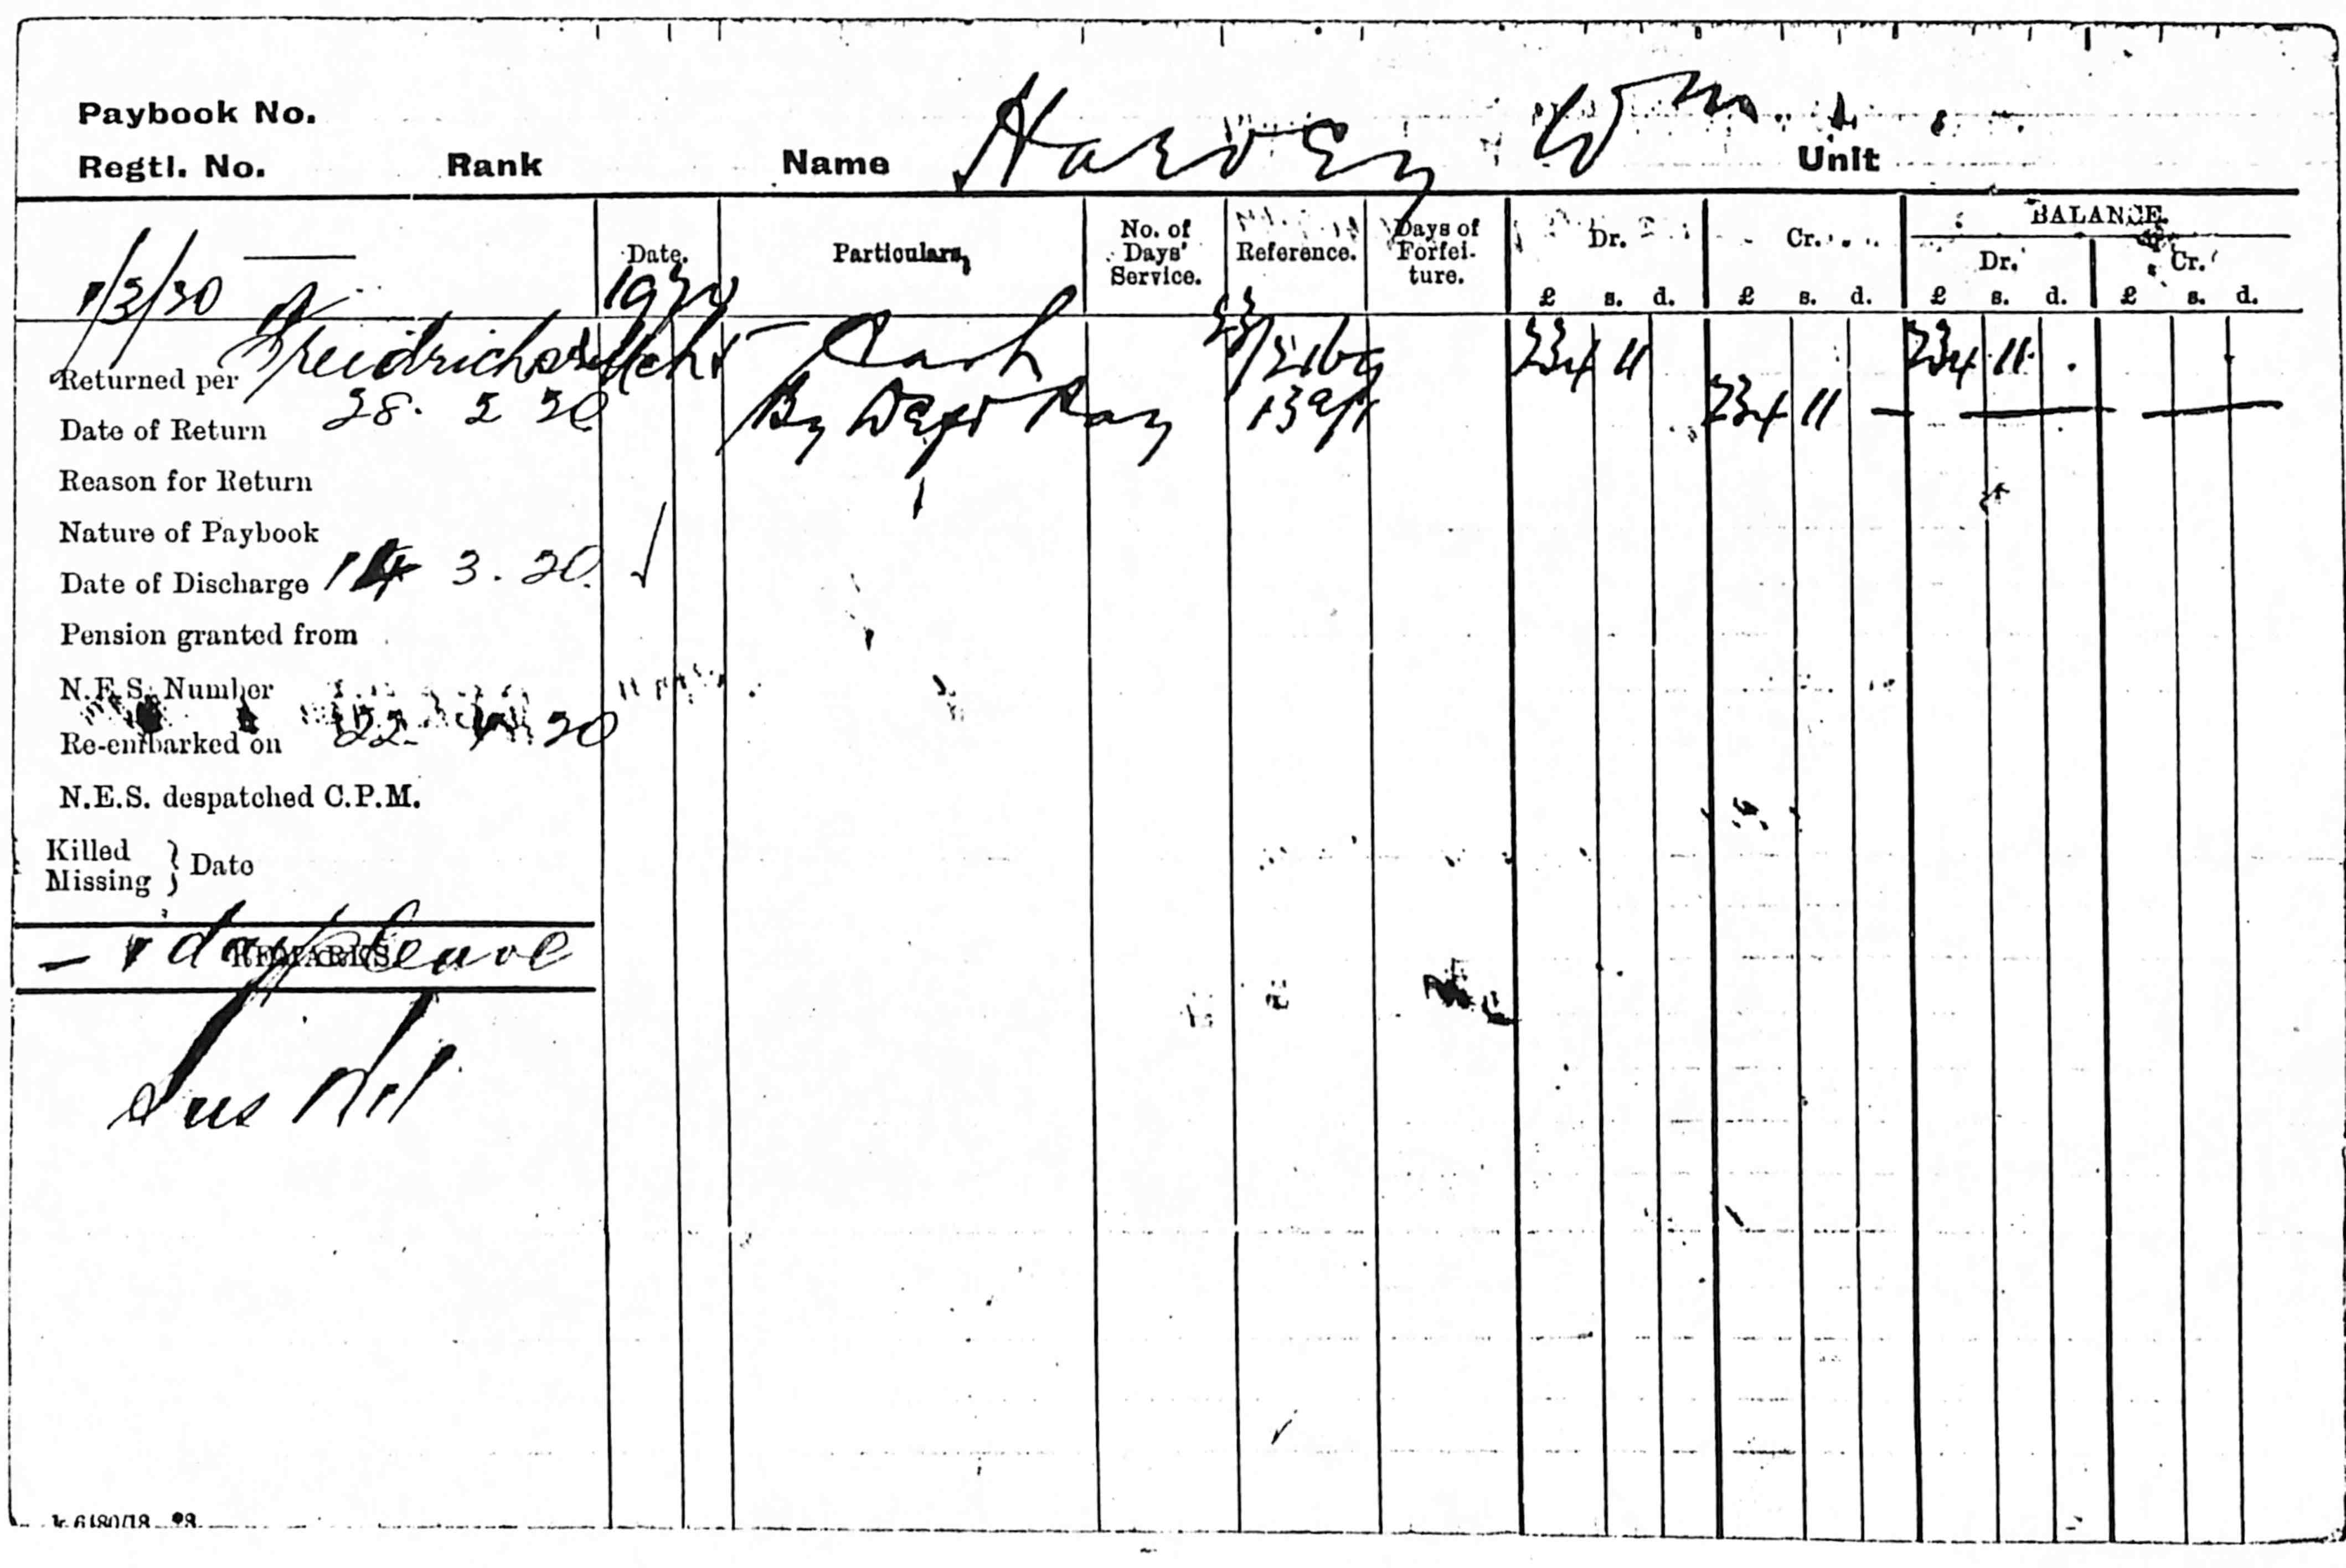 Paybook No.
Regtl. No. Rank Name Harvey Wm. Unit
1/3/20
Date. Particulars, No. of Days' Service. Reference. Days of Forfeiture. Dr. £ s. d. Cr. £ s. d. BALANCE. Dr. £ s. d. Cr. £ s. d.
1920
Returned per Freidrichsruh Mch 1 Cash 234 11 234 11
Date of Return 28. 2 20 By Dept Pay 234 11
Reason for Return
Nature of Paybook
Date of Discharge 14 3. 20
Pension granted from
N.E.S. Number
Re-embarked on 22. 20
N.E.S. despatched C.P.M.
Killed
Missing } Date
REMARKS
days leave
Sus Nil